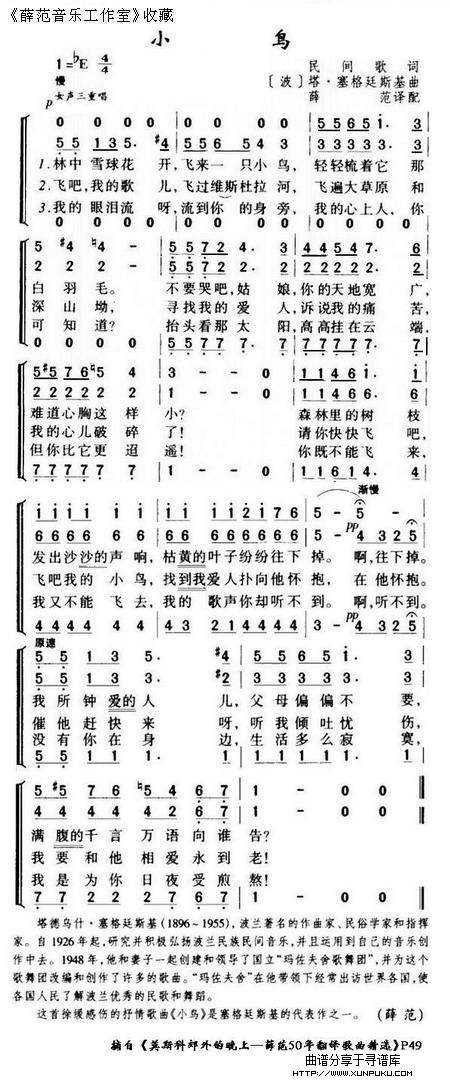 《薛范音乐工作室》收藏
小 鸟
1=♭E 4/4
民间歌词
慢
〔波〕塔·塞格廷斯基曲
薛 范译配
p 女声三重唱
0 0 0 0 0 0 0 0 5 5 6 5 i· 3
5 5 1 3 5· #4 5 5 6 5 4 3 3 3 3 3 3· 3
1.林中 雪球花 开,飞来一 只小 鸟, 轻轻梳着它 那
2.飞吧,我的歌 儿,飞过维斯杜拉 河, 飞遍大草原 和
3.我的 眼泪流 呀,流到你 的身 旁,我的心上人, 你
0 0 0 0 0 0 0 0 0 0 0 0
5 #4 ♮4 - 5 5 7 2 4· 3 4 4 5 4 7· 6
2 2 2 - 5 5 7 2 2· 2 2 2 2 2 2· 2
白 羽 毛。 不要哭吧,姑 娘,你的天地宽 广,
深 山 坳, 寻找我的爱 人,诉说我的痛 苦,
可 知 道? 抬头看那太 阳,高高挂在云 端,
0 0 0 0 5 5 7 7 7· 7 7 7 7 7 7· 7
5 #5 7 6 ♮5 4 3 - - 0 1 1 4 6 i· i
2 2 2 2 2 2 1 - - 0 1 1 4 6 6· 6
难道心胸这 样 小? 森林里的树 枝
我的心儿破 碎 了! 请你快快飞 吧,
但你比它更 迢 遥! 你既不能飞 来,
7 7 7 7 7 7 1 - - 0 1 1 6 1 4· 4
渐慢
i i i i i i i i i 2 i 7 6 5 - 5 -
6 6 6 6 6 6 6 6 6 6 6 6 6 5 - pp 4 3 2 5
发出沙沙的声 响,枯黄的叶子纷纷往下 掉。 啊,往下掉。
飞吧我的 小 鸟,找到我爱人扑向他怀 抱, 在 他怀抱。
我又不能 飞 去,我的 歌声你却听不 到。 啊,听不到。
4 4 4 4 4 4 4 3 2 1 4 4 4 4 3 - pp 4 3 2 5
原速
5 5 1 3 5· #4 5 5 6 5 i· 3
5 5 1 3 3· #2 3 3 3 3 3· 3
我 所 钟 爱的 人 儿, 父 母 偏 偏 不 要,
催 他 赶 快 来 呀,听 我 倾 吐 忧 伤,
没 有 你 在 身 边,生 活 多 么 寂 寞,
5 5 1 1 1· 1 1 1 1 1 1· 1
5 #5 7 6 ♮5 4 6 7 1 - 0 0
4 4 4 4 4 2 6 7 1 - 0 0
满 腹的千 言 万 语向 谁 告?
我 要 和 他 相 爱 永 到 老!
我 是 为 你 日 夜 受 煎 熬!
7 7 2 2 2 2 6 7 1 - 0 0
塔德乌什·塞格廷斯基(1896~1955),波兰著名的作曲家、民俗学家和指挥
家。自1926年起,研究并积极弘扬波兰民族民间音乐,并且运用到自己的音乐创
作中去。1948年,他和妻子一起创建和领导了国立“玛佐夫舍歌舞团”,并为这个
歌舞团改编和创作了许多的歌曲。“玛佐夫舍”在他带领下经常出访世界各国,使
各国人民了解波兰优秀的民歌和舞蹈。
这首徐缓感伤的抒情歌曲《小鸟》是塞格廷斯基的代表作之一。 (薛 范)
摘自《莫斯科郊外的晚上—薛范50年翻译歌曲精选》P49
曲谱分享于寻谱库
www.XUNPUKU.com